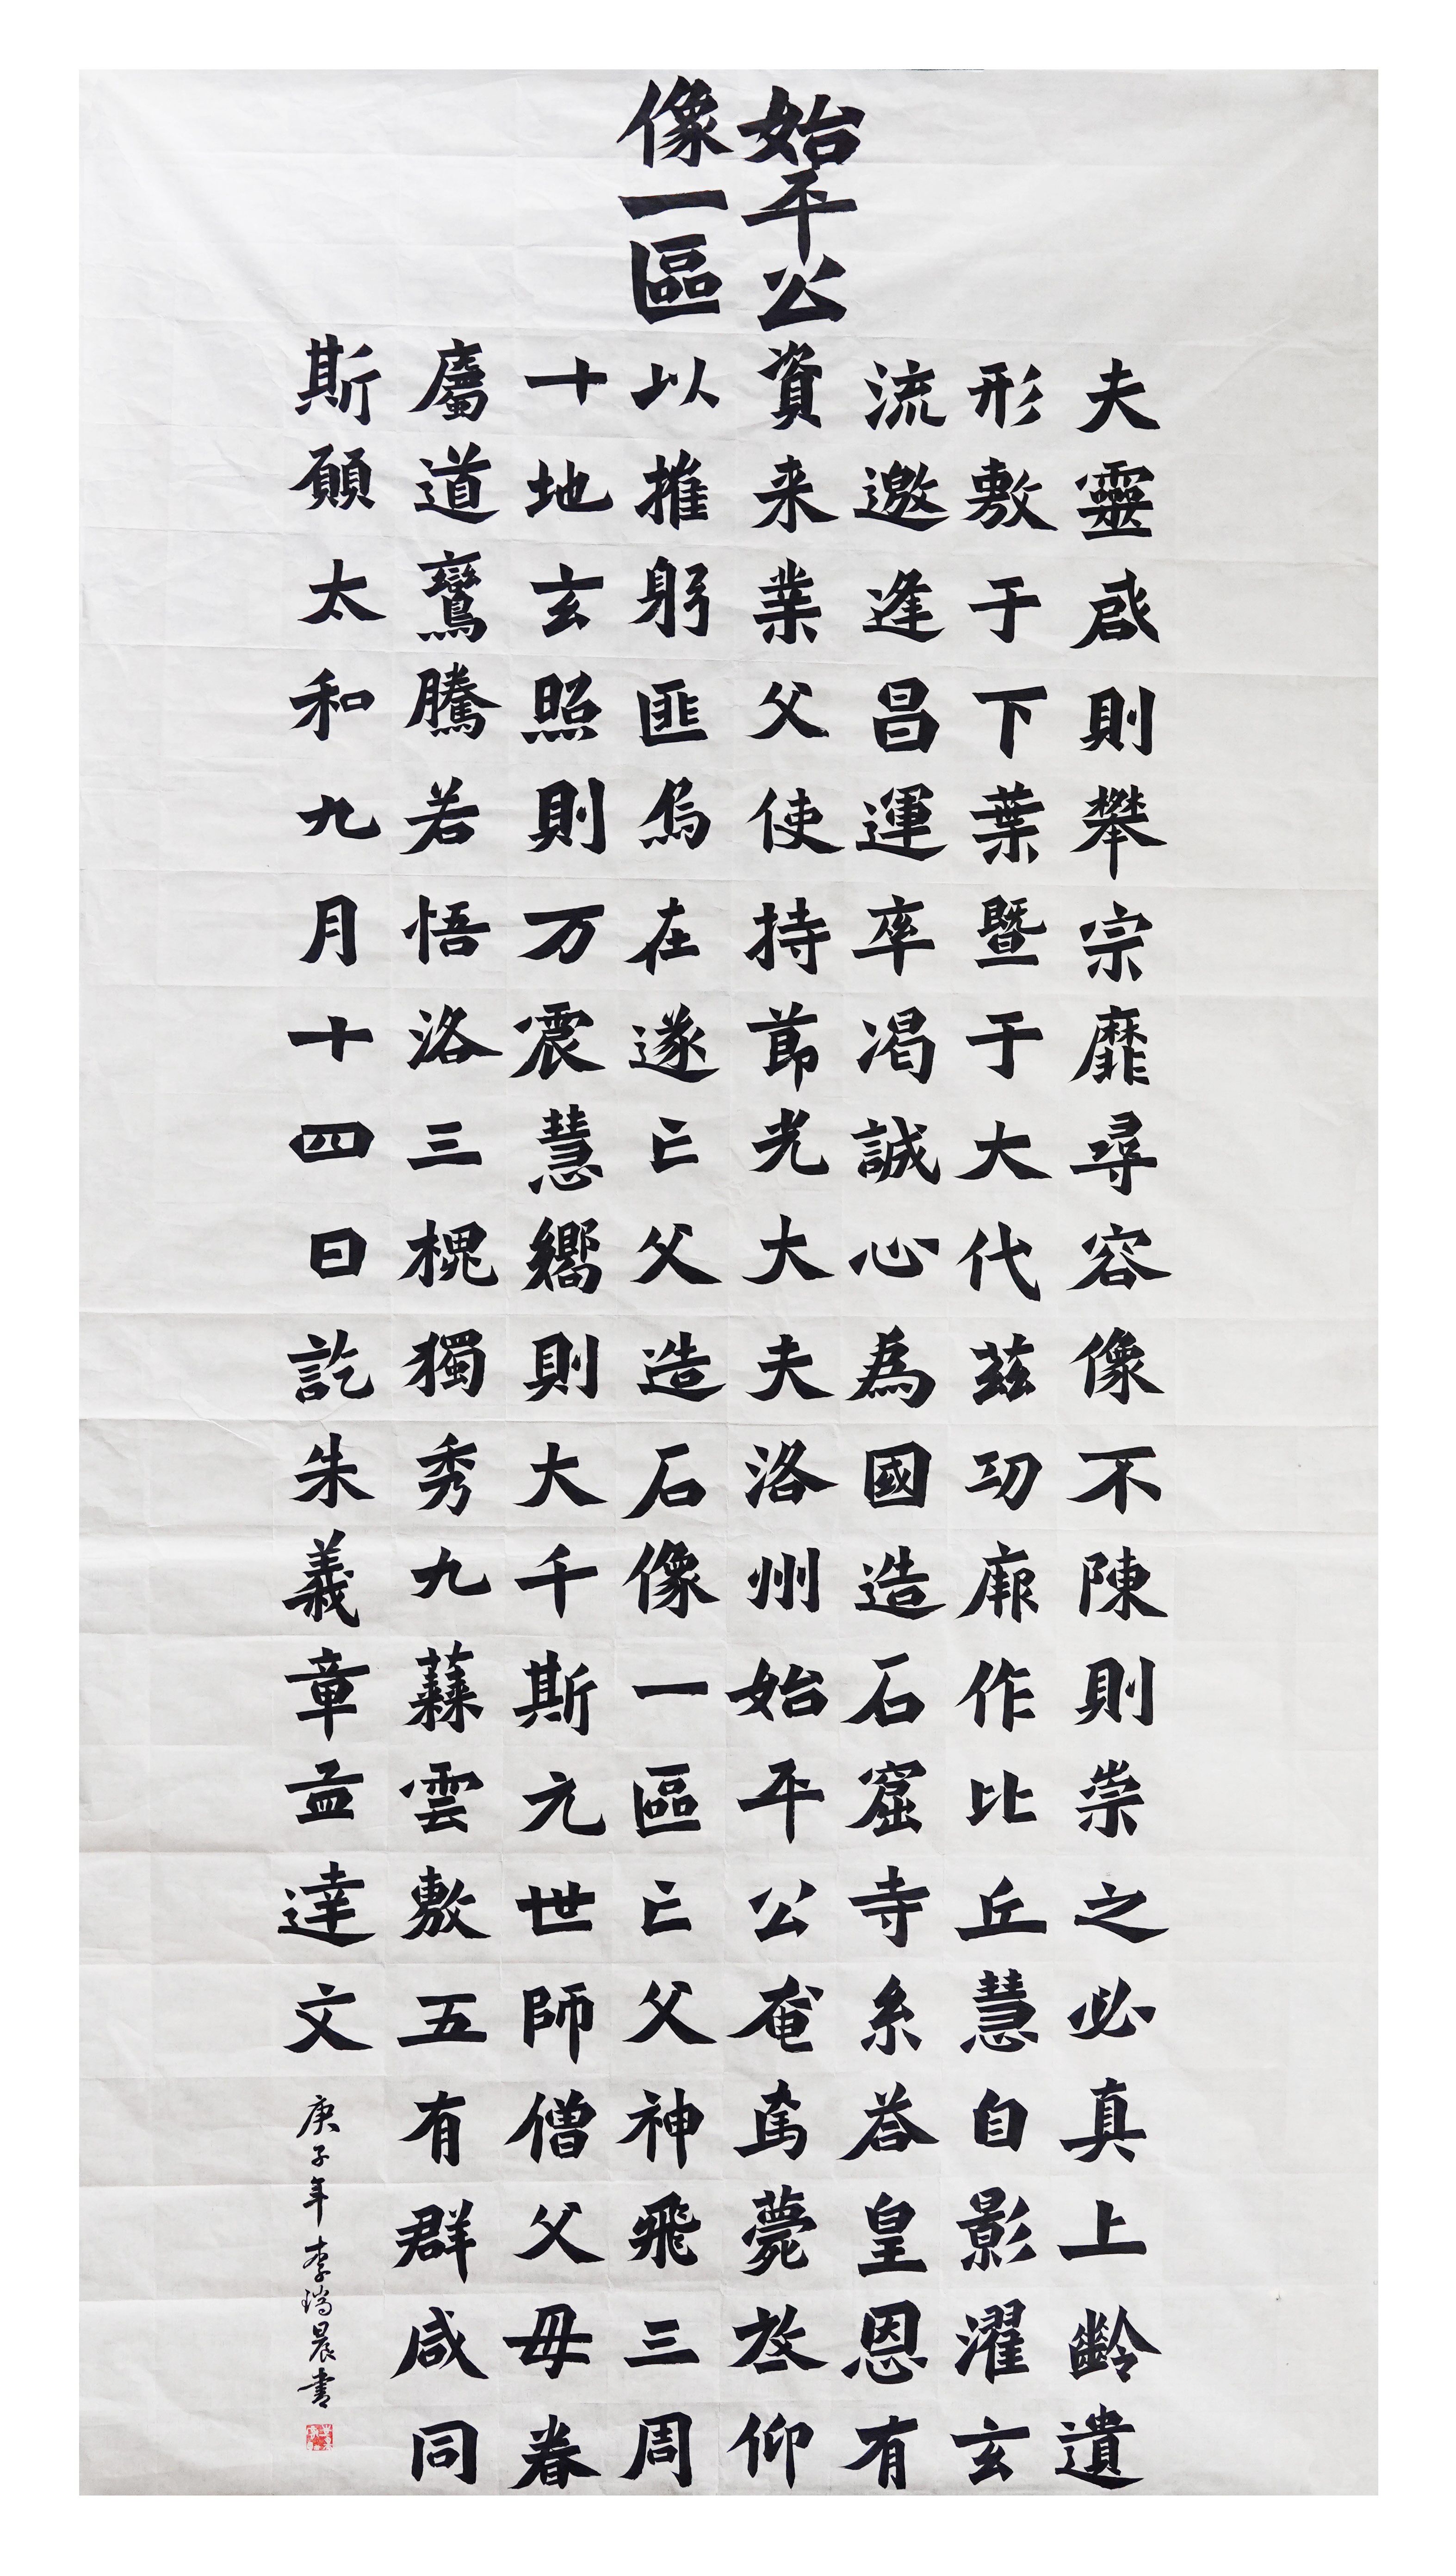 始平公
像一區
夫靈启則攀宗靡尋容像不陳則崇之必真上齡遺
形敷于下葉暨于大代茲功厥作比丘慧自影濯玄
流邀逢昌運率渴誠心為國造石窟寺系荅皇恩有
資来業父使持節光大夫洛州始平公奄焉薨放仰
以摧躬匪烏在遂亡父造石像一區亡父神飛三周
十地玄照則万震慧嚮則大千斯元世師僧父母眷
屬道鸞騰若悟洛三槐獨秀九蕀雲敷五有群咸同
斯願太和九月十四日訖朱義章孟達文
庚子年李瑞晨書